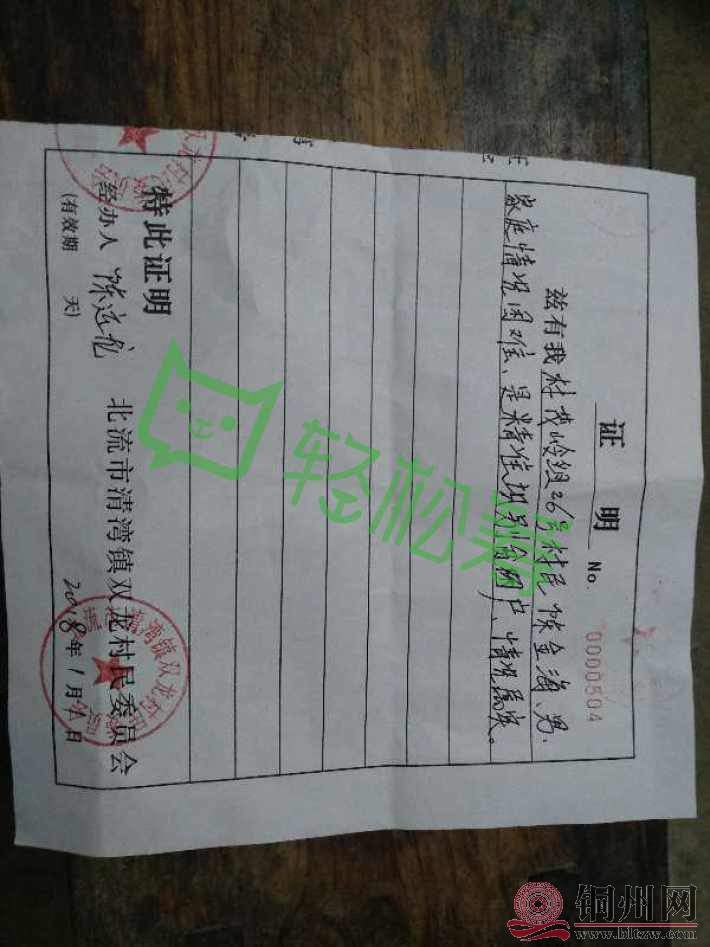 证 明
No. 0000504
兹有我村茂岭组26号村民陈金海、男、
家庭情况困难、是精准识别贫困户、情况属实。
特此证明
经办人
北流市清湾镇双龙村民委员会
(有效期 天)
2018年1月 日
轻松筹
铜州网
www.bltzw.com